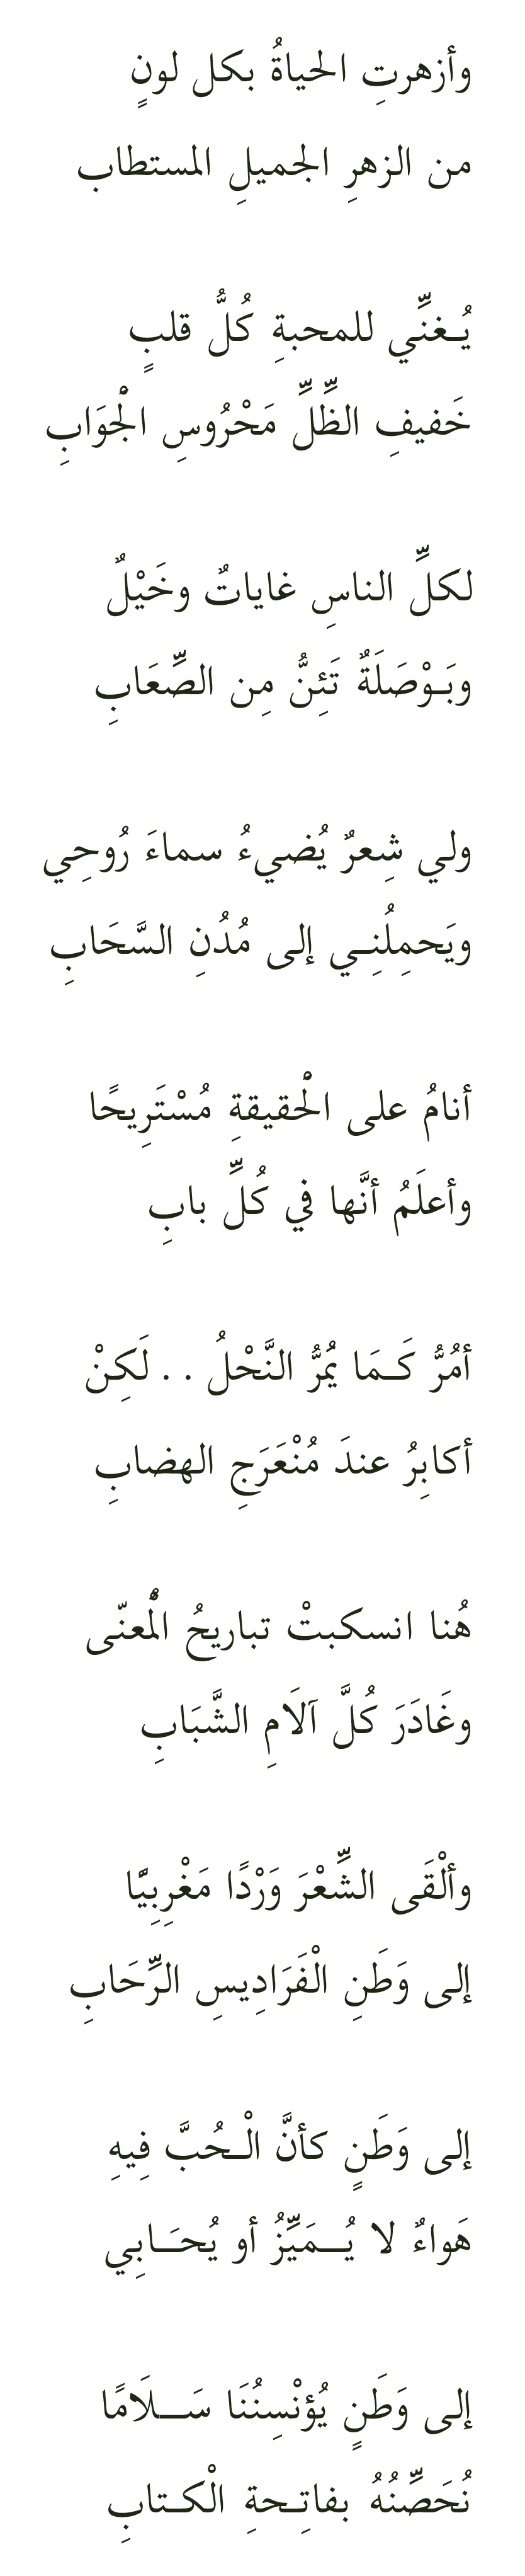 وأزهرتِ الحياةُ بكل لونٍ
من الزهرِ الجميلِ المستطاب
يُـغنِّي للمحبةِ كُلُّ قلبٍ
خَفيفِ الظِّلِّ مَحْرُوسِ الْجَوَابِ
لكلِّ الناسِ غاياتٌ وخَيْلٌ
وبَـوْصَلَةٌ تَئِنُّ مِن الصِّعَابِ
ولي شِعرٌ يُضيءُ سماءَ رُوحِي
ويَحمِلُنِـي إلى مُدُنِ السَّحَابِ
أنامُ على الْحَقيقةِ مُسْتَرِيحًا
وأعلَمُ أنَّها في كُلِّ بابِ
أمُرُّ كَـمَا يَمُرُّ النَّحْلُ . . لَكِنْ
أكابِرُ عندَ مُنْعَرَجِ الهضابِ
هُنا انسكبتْ تباريحُ الْمُعنّى
وغَادَرَ كُلَّ آلَامِ الشَّبَابِ
وألْقَى الشِّعْرَ وَرْدًا مَغْرِبِيًّا
إلى وَطَنِ الْفَرَادِيسِ الرِّحَابِ
إلى وَطَنٍ كأنَّ الْـحُبَّ فِيهِ
هَواءٌ لا يُـــمَيِّزُ أو يُحَــابِي
إلى وَطَنٍ يُؤنْسِنُنَا سَـــلَامًا
نُحَصِّنُهُ بفاتِـحةِ الْكـتابِ